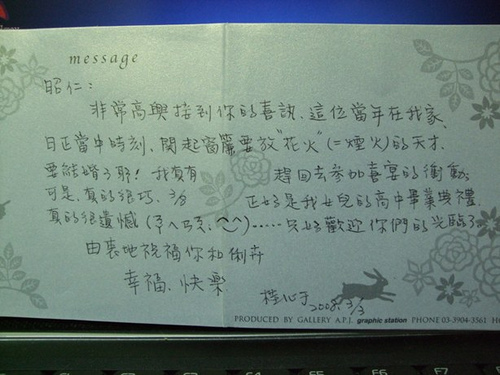 message
昭仁：
非常高興接到你的喜訊，這位當年在我家、
日正當中時刻，關起窗簾要放"花火"(=煙火)的天才，
要結婚了耶！我真有 趕回去參加喜宴的衝動
可是，真的很巧，3/8 正好是我女兒的高中畢業典禮，
真的很遺憾 ……只好歡迎你們的光臨了
由衷地祝福你和俐卉
幸福、快樂
桂心于2008.3/3
PRODUCED BY GALLERY A.P.J. graphic station PHONE 03-3904-3561
F4 F5 F6 F7